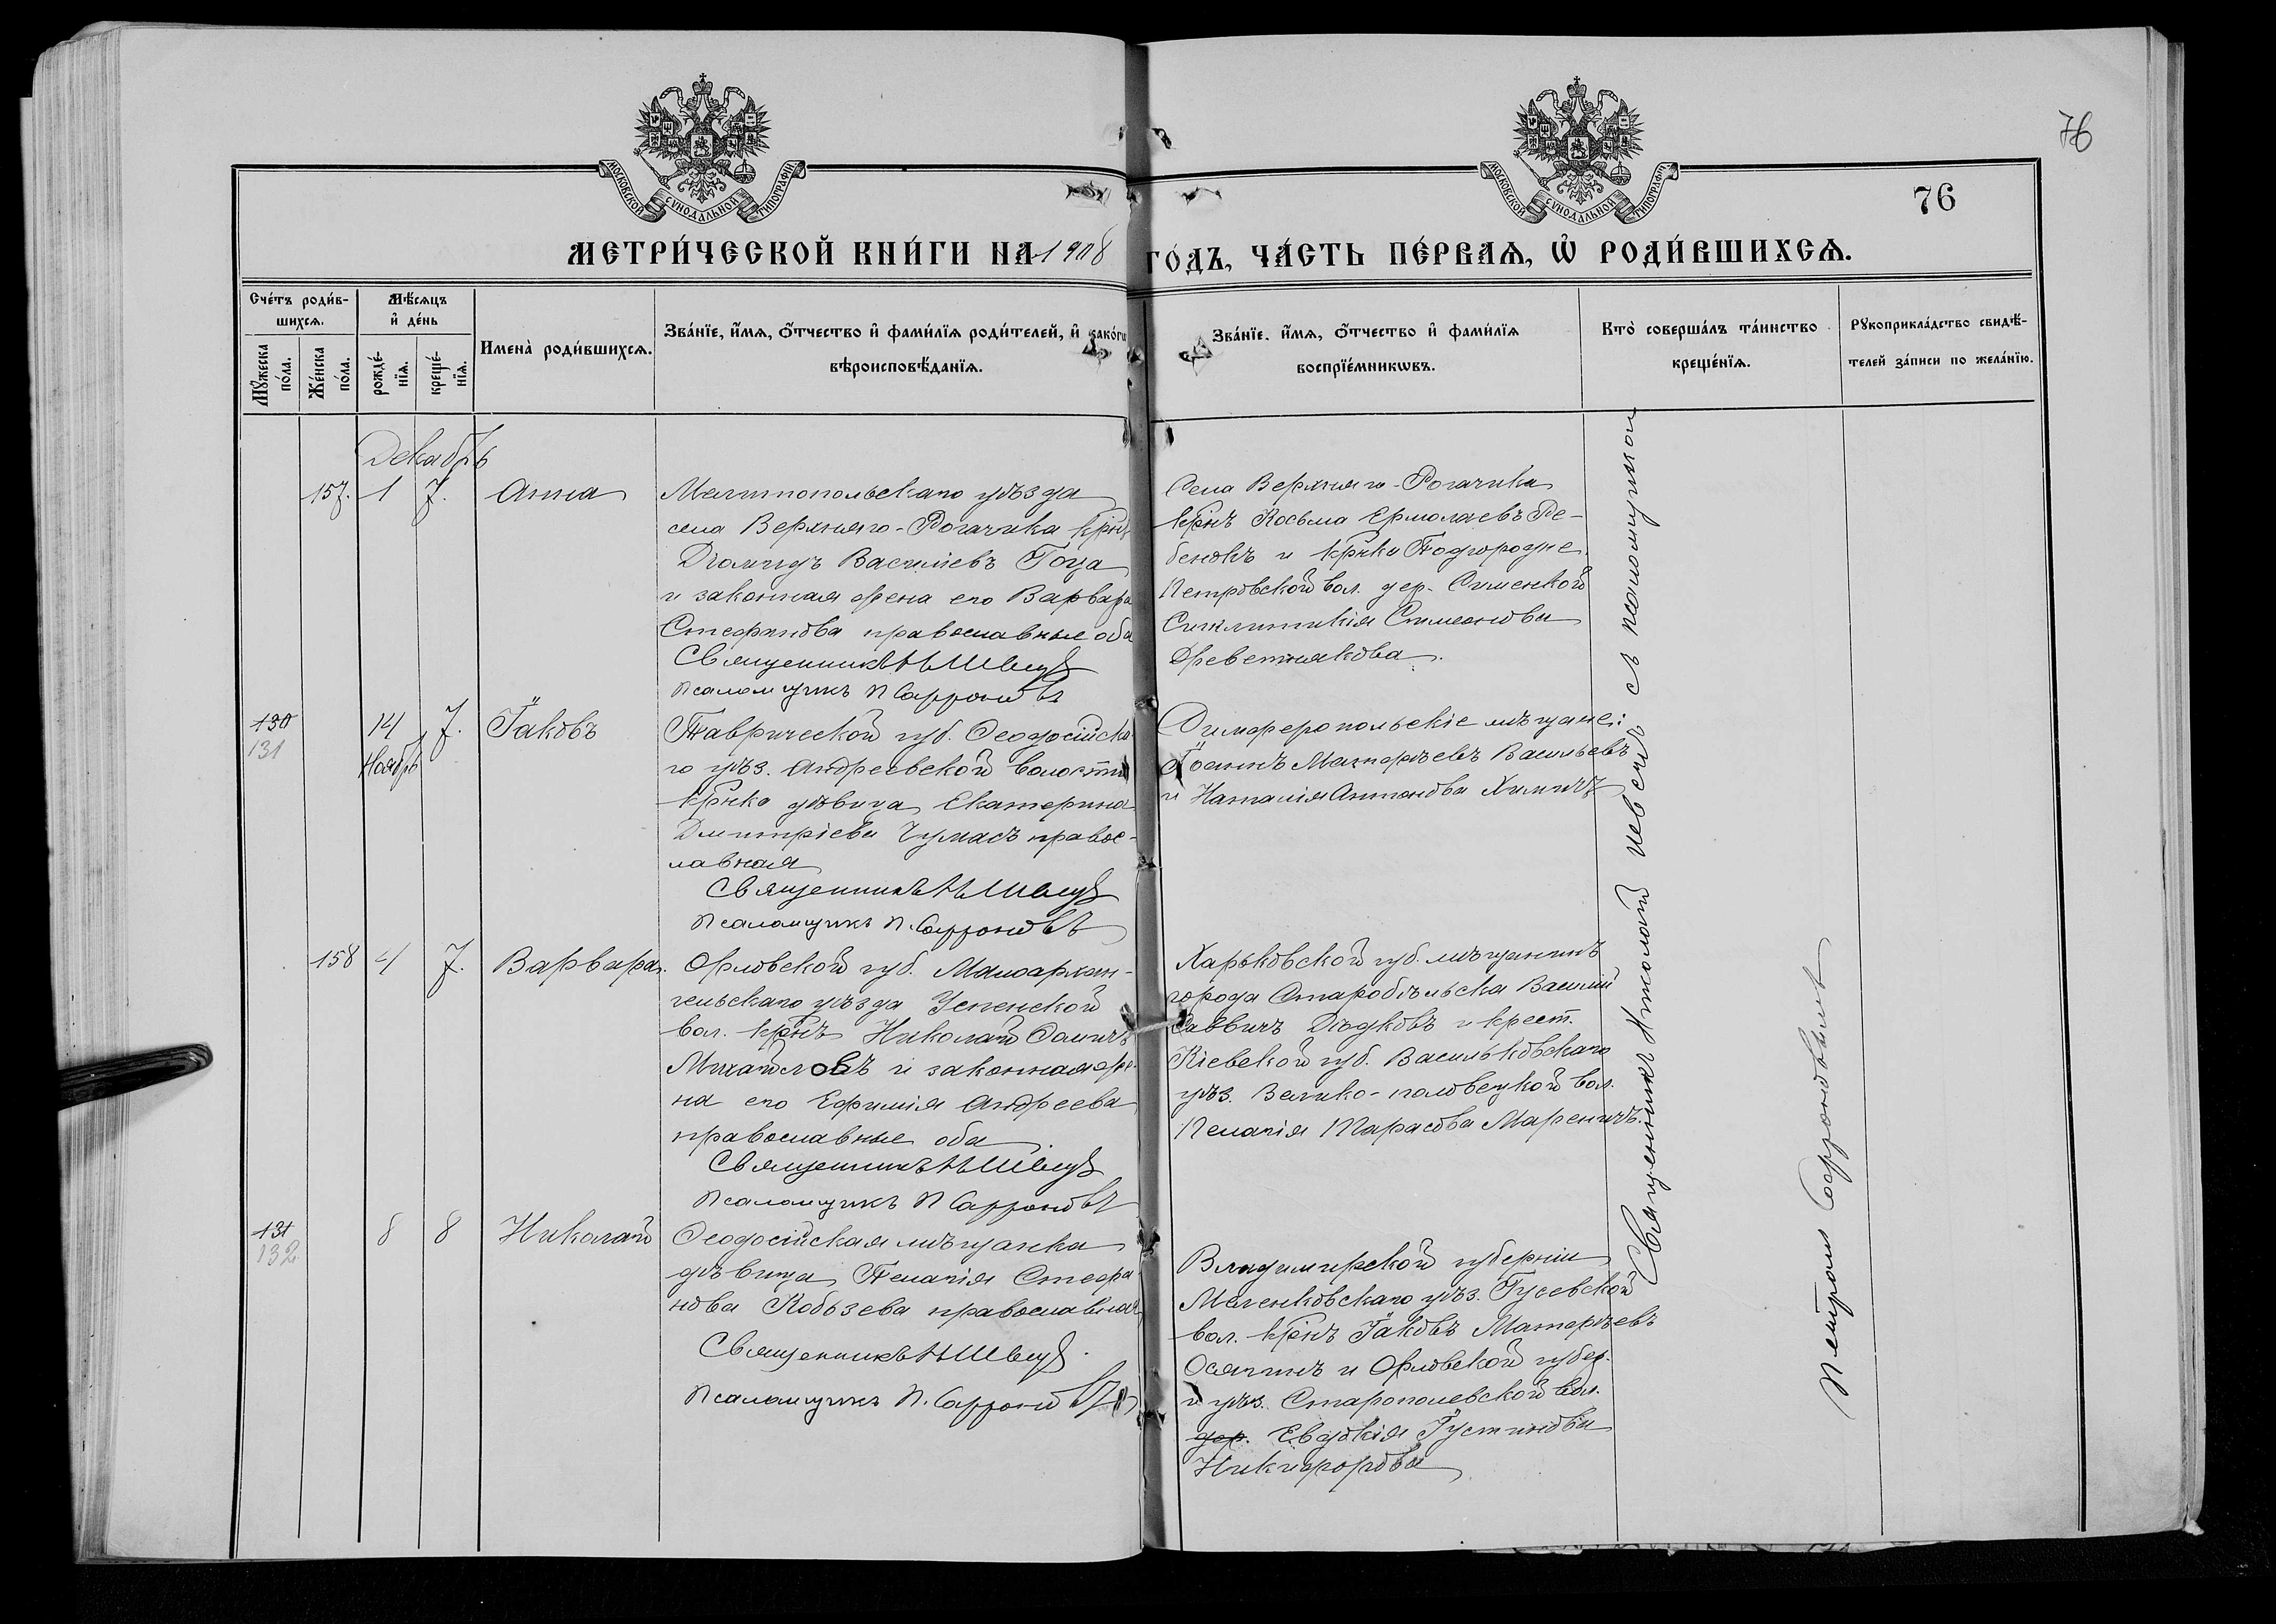 76
76
МОСКОВСКОЙ СѴНОДАЛЬНОЙ ТИПОГРАФІИ
МОСКОВСКОЙ СѴНОДАЛЬНОЙ ТИПОГРАФІИ
МЕТРИ́ЧЕСКОЙ КНИ́ГИ НА 1908 ГО́ДЪ, ЧА́СТЬ ПЕ́РВАѦ, Ѡ҆ РОДИ́ВШИХСѦ.
Сче́тъ роди́в-
шихсѧ.
Мꙋ́жеска
по́ла.
Же́нска
по́ла.
Мѣ́сѧцъ
и҆ де́нь
рожде́-
нїѧ.
креще́-
нїѧ.
Имена̀ роди́вшихсѧ.
Зва́нїе, и҆́мѧ, ѻ҆́тчество и҆ фами́лїѧ роди́телей, и҆ како́гѡ
вѣроисповѣ́данїѧ.
Зва́нїе, и҆́мѧ, ѻ҆́тчество и҆ фами́лїѧ
воспрїе́мникѡвъ.
Кто̀ соверша́лъ та́инство
креще́нїѧ.
Рꙋкоприкла́дство свидѣ́-
телей за́писи по жела́нїю.
Декабрь
157. 1 7. Анна
Мелитопольскаго уѣзда
села Верхняго-Рогачика крнъ
Діомидъ Васильевъ Гоца
и законная жена его Варвара
Стефанова православные оба
Священникъ Н Швецъ
Псаломщикъ П Софроновъ
Села Верхняго-Рогачика
крнъ Косьма Ермолаевъ Ре-
бенокъ и крнка Подгородне
Петровской вол. дер. Сименкой
Синклитикія Симеонова
Древетнякова.
130
131
14 7. Іаковъ
Ноябрь
Таврической губ. Ѳеодосійска-
го уѣз. Андреевской волости
крнка дѣвица Екатерина
Дмитріева Чумасъ правос-
лавная
Священникъ Н Швецъ
Псаломщикъ П. Софроновъ
Симферопольскіе мѣщане:
Іоаннъ Матфѣевъ Васильевъ
и Наталія Антонова Химичъ
158 4 7. Варвара.
Орловской губ. Малоархан-
гельскаго уѣзда Успенской
вол. крнъ Николай Ѳомичъ
Михайловъ и законная же-
на его Ефимія Андреева
православные оба.
Священникъ Н Швецъ
Псаломщикъ П Софроновъ
Харьковской губ. мѣщанинъ
города Старобѣльска Василій
Саввичъ Дѣдковъ и крест.
Кіевской губ. Васильковскаго
уѣз. Велико-половецкой вол.
Пелагія Тарасова Мареничъ.
131
132
8 8 Николай
Ѳеодосійская мѣщанка
дѣвица Пелагія Стефа
нова Кобызева православная
Священникъ Н Швецъ.
Псаломщикъ П. Софроновъ
Владимирской губерніи
Меленковскаго уѣз. Гусевской
вол. крнъ Іаковъ Матфѣевъ
Осягинъ и Орловской губер.
и уѣз. Старополевской вол.
дер. Евдокія Іустинова
Никифорова
Священникъ Николай Швецъ съ псаломщикомъ
Петромъ Софроновымъ